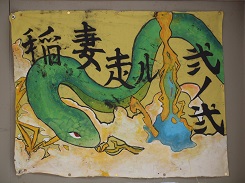 稲妻走ル
弐ノ弐